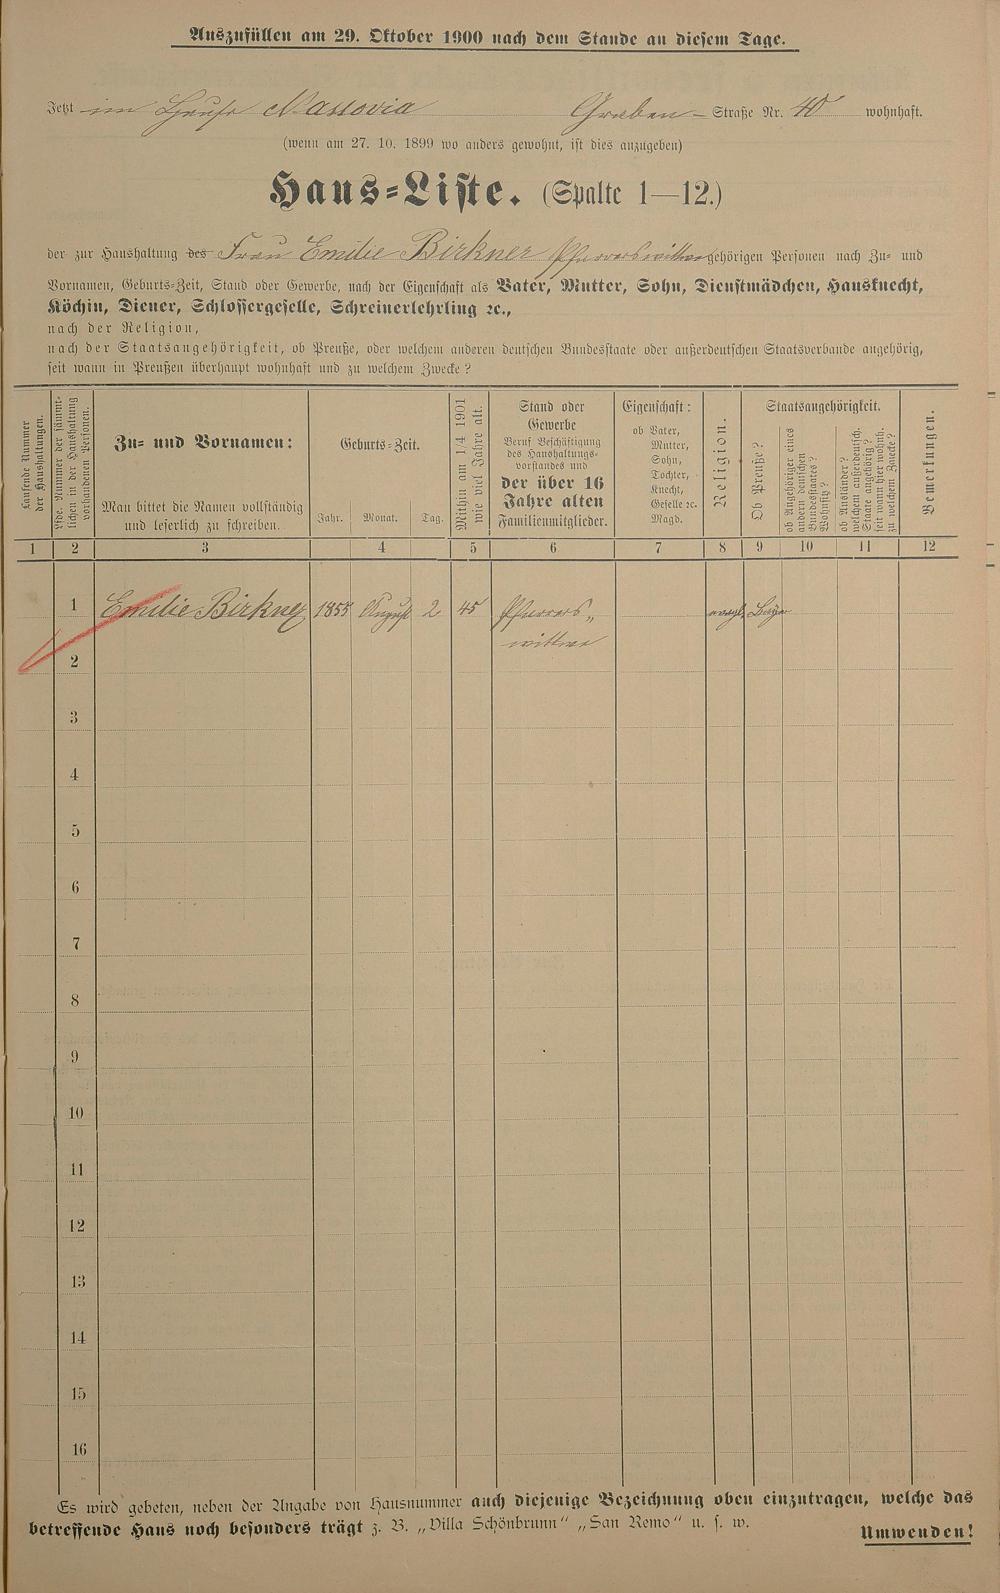 Auszufüllen am 29. Oktober 1900 nach dem Stande an diesem Tage.
Jetzt im Hause Nassovia Graben-Straße Nr. 40 wohnhaft.
(wenn am 27. 10. 1899 wo anders gewohnt, ist dies anzugeben)
Haus-Liste. (Spalte 1—12.)
der zur Haushaltung des Frau Emilie Birkner Pfarrerswittwe gehörigen Personen nach Zu- und
Vornamen, Geburts-Zeit, Stand oder Gewerbe, nach der Eigenschaft als Vater, Mutter, Sohn, Dienstmädchen, Hausknecht,
Köchin, Diener, Schlossergeselle, Schreinerlehrling ꝛc.,
nach der Religion,
nach der Staatsangehörigkeit, ob Preuße, oder welchem anderen deutschen Bundesstaate oder außerdeutschen Staatsverbande angehörig,
seit wann in Preußen überhaupt wohnhaft und zu welchem Zwecke?
Laufende Nummer
der Haushaltungen.
Lfde. Nummer der sämmt-
lichen in der Haushaltung
vorhandenen Personen.
Zu- und Vornamen:
Man bittet die Namen vollständig
und leserlich zu schreiben.
Geburts-Zeit.
Jahr. Monat. Tag.
Mithin am 1/4 1901
wie viel Jahre alt.
Stand oder
Gewerbe
Beruf Beschäftigung
des Haushaltungs-
vorstandes und
der über 16
Jahre alten
Familienmitglieder.
Eigenschaft:
ob Vater,
Mutter,
Sohn,
Tochter,
Knecht,
Geselle ꝛc.
Magd.
Religion.
Staatsangehörigkeit.
Ob Preuße?
ob Angehöriger eines
andern deutschen
Bundesstaates?
Wohnsitz?
ob Ausländer?
welchem außerdeutsch.
Staate angehörig?
seit wann hier wohnh.
zu welchem Zwecke?
Bemerkungen.
1 2 3 4 5 6 7 8 9 10 11 12
1 Emilie Birkner 1855 August 2 45 Pfarrers„ evagl. Bayer
wittwe
2
3
4
5
6
7
8
9
10
11
12
13
14
15
16
Es wird gebeten, neben der Angabe von Hausnummer auch diejenige Bezeichnung oben einzutragen, welche das
betreffende Haus noch besonders trägt z. B. „Villa Schönbrunn" „San Remo" u. s. w.
Umwenden!